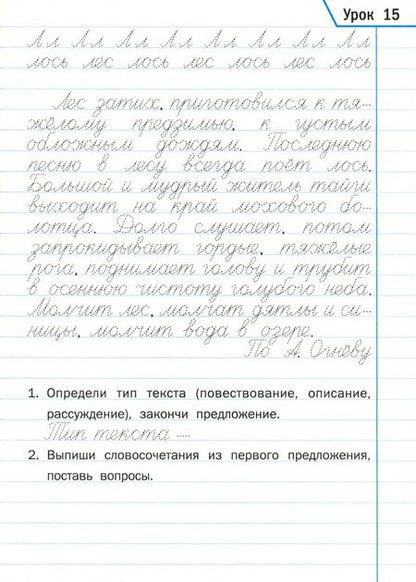 Урок 15
Лл Лл Лл Лл Лл Лл Лл Лл
лось лес лось лес лось лес лось
Лес затих, приготовился к тя-
жёлому предзимью, к густым
обложным дождям. Последнюю
песню в лесу всегда поёт лось.
Большой и мудрый житель тайги
выходит на край мохового бо-
лотца. Долго слушает, потом
запрокидывает гордые, тяжёлые
рога, поднимает голову и трубит
в осеннюю чистоту голубого неба.
Молчит лес, молчат дятлы и си-
ницы, молчит вода в озере.
По А. Огнёву
1. Определи тип текста (повествование, описание,
рассуждение), закончи предложение.
Тип текста —
2. Выпиши словосочетания из первого предложения,
поставь вопросы.